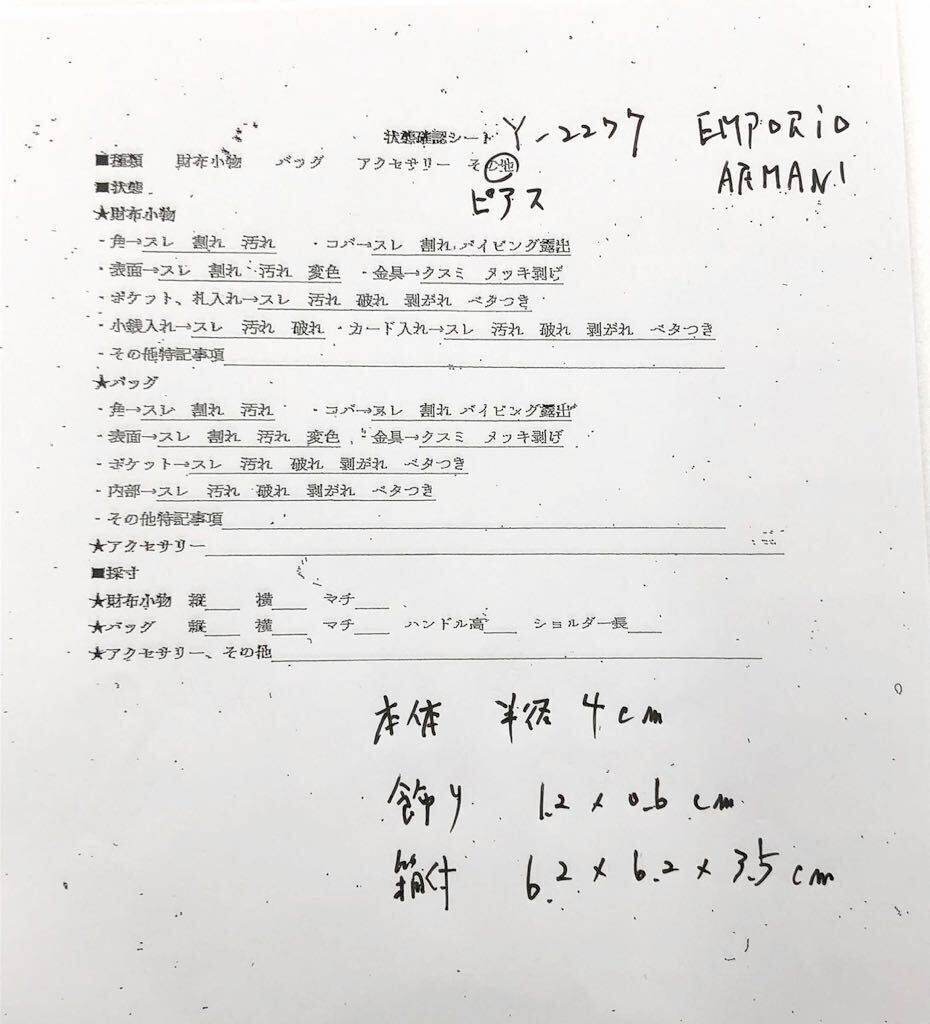 状態確認シート Y-2277 EMPORiO
ARMANI
■種類 財布小物 バッグ アクセサリー その他
ピアス
■状態
★財布小物
・角→スレ 割れ 汚れ ・コバ→スレ 割れ パイピング露出
・表面→スレ 割れ 汚れ 変色 ・金具→クスミ メッキ剥げ
・ポケット、札入れ→スレ 汚れ 破れ 剥がれ ベタつき
・小銭入れ→スレ 汚れ 破れ ・カード入れ→スレ 汚れ 破れ 剥がれ ベタつき
・その他特記事項
★バッグ
・角→スレ 割れ 汚れ ・コバ→スレ 割れ パイピング露出
・表面→スレ 割れ 汚れ 変色 ・金具→クスミ メッキ剥げ
・ポケット→スレ 汚れ 破れ 剥がれ ベタつき
・内部→スレ 汚れ 破れ 剥がれ ベタつき
・その他特記事項
★アクセサリー
■採寸
★財布小物 縦 横 マチ
★バッグ 縦 横 マチ ハンドル高 ショルダー長
★アクセサリー、その他
本体 半径 4cm
飾り 1.2×0.6cm
箱付 6.2×6.2×3.5cm